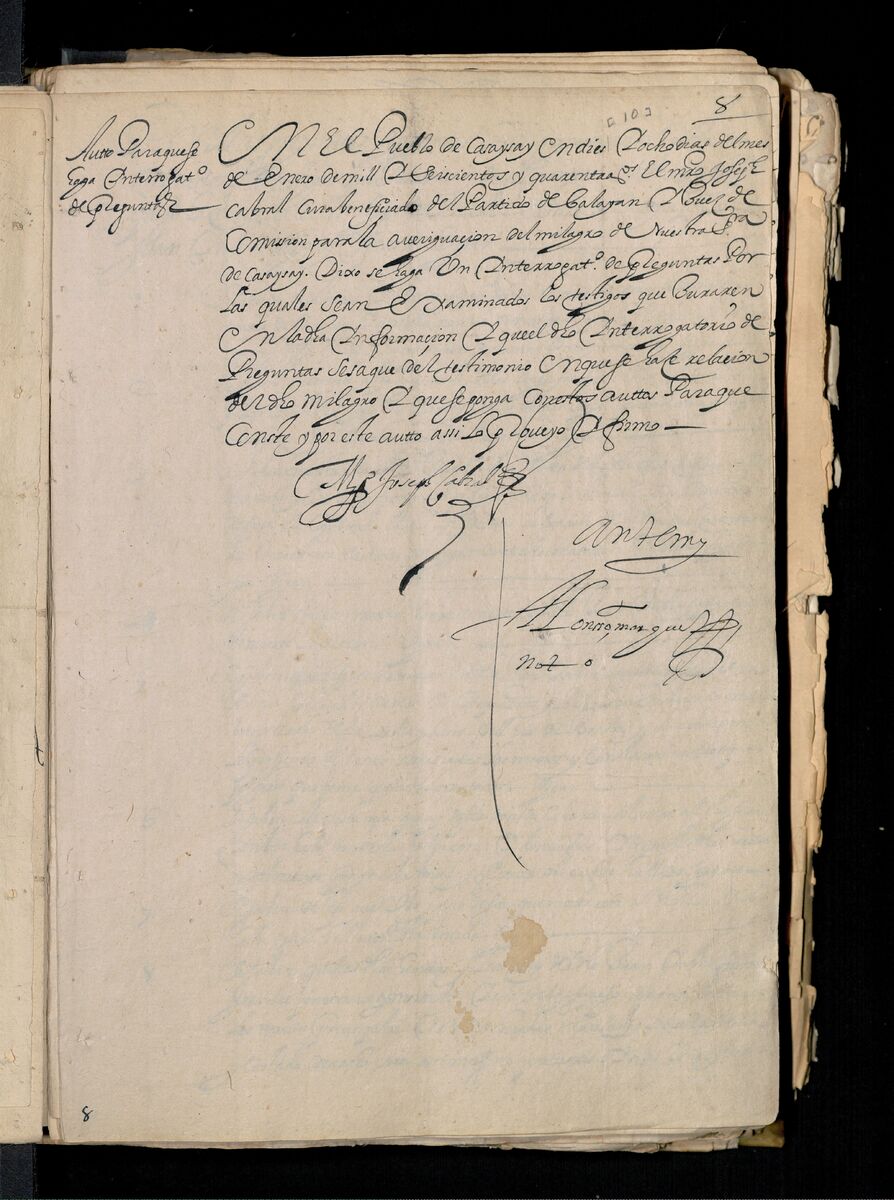 8
[10]
Autto Paraquese
haga Interrogat.º
de Preguntas
En El Pueblo de Casaysay En dies Y ocho dias del mes
de Enero de mill Y Seiscientos y quarenta a.ˢ El mro Joseph
Cabral Cura beneficiado del Partido de Balayan Y Juez de
Comision para la averiguacion del milagro de Nuestra S.ra
de Casaysay. Dixo se haga Un Interrogat.º de Preguntas Por
Las quales sean Examinados los testigos que Juraren
En la dha Informaçion Y que el dho Interrogatorio de
Preguntas se saque del testimonio En que se hase relacion
del dho milagro Y que se ponga Con estos auttos Para que
Conste y por este autto assi lo Proveyo Y firmo
M.º Joseph Cabral
Ante my
Alonsso marques
not.º
8